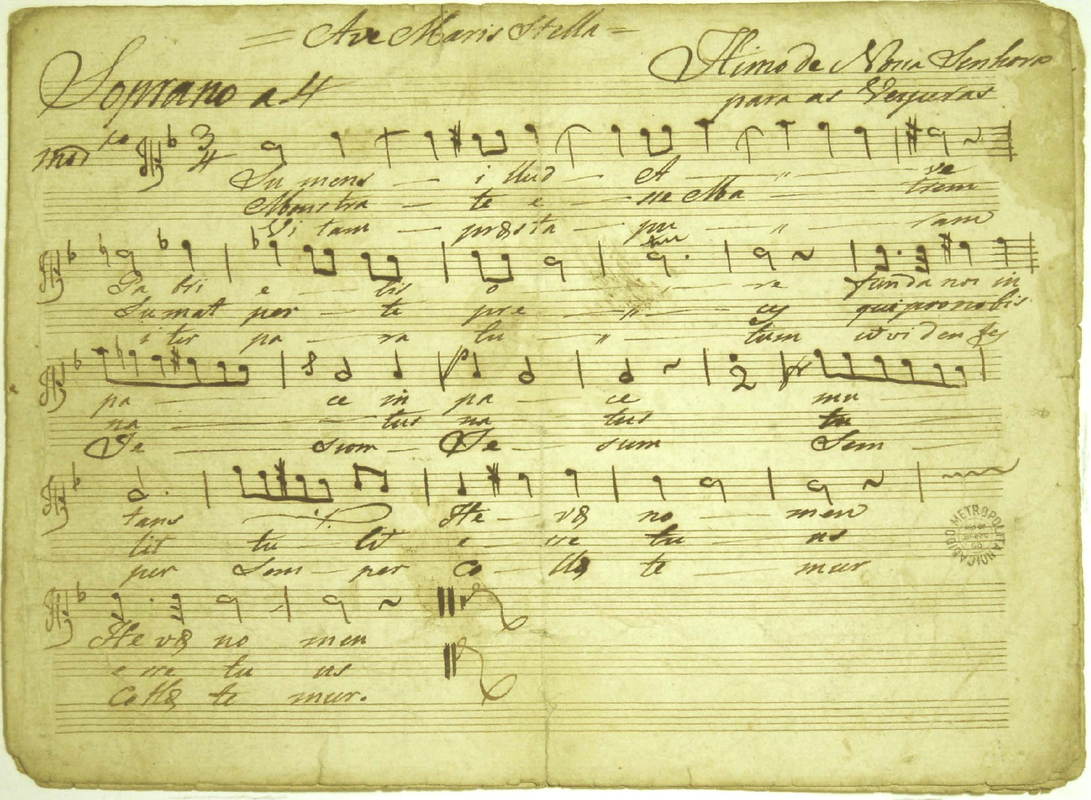 = Ave Maris Stella =
Soprano a 4
Himo de Nossa Senhora
para as Vesperas
mod.to 3/4
Su mens — i llud — A — " — ve
Mons tra — te e — sse Ma — trem
Vi tam — præsta — pu — " — ram
Ga bri e — lis o — re funda nos in
Sumat per — te pre — " — ces qui pro nobis
i ter pa — ra tu — " — tum ut viden tes
pa — ce in pa — ce mu —
na — tus na — tus tu —
Je — sum Je — sum Sem —
tans He — væ no — men
lit tu — lit e — sse tu — us
per Sem — per Co — llæ te — mur
He væ no men
e sse tu us
Collæ te mur.
CABIDO METROPOLITANO